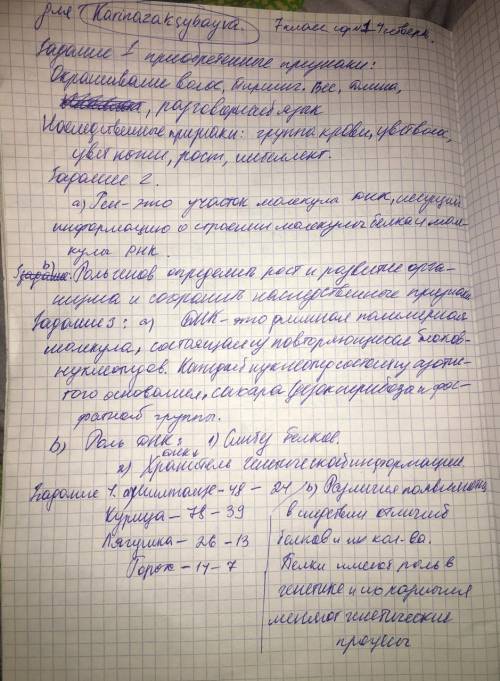 для Karinazaksybayva.
7 класс сор №1 4 четверть.
Задание 1 приобретенные признаки:
Окрашивание волос, пирсинг. Вес, длина,
, разговорный язык
Наследственные признаки: группа крови, цвет волос,
цвет кожи, рост, интеллект.
Задание 2.
а) Ген - это участок молекула ДНК, несущий
информацию о строении молекулы белка и моле-
кула РНК.
b) Роль генов определил рост и развитие орга-
низма и сохранить наследственные признаки
Задание 3: а) ДНК - это длинная полимерная
молекула, состоящая из повторяющихся блоков-
нуклеотидов. Каждый нуклеотид состоит из азотис-
того основания, сахара (дезоксирибоза и фос-
фатной группы.
b) Роль ДНК: 1) Синтез белков.
2) Хранитель генетической информации
Задание 4. а) шимпанзе - 48 - 24
Курица - 78 - 39
Лягушка - 26 - 13
Горох - 14 - 7
b) Различия появились
в следствии отличий
белков и их кол-ва.
Белки имеют роль в
генетике и их различия
меняют генетические